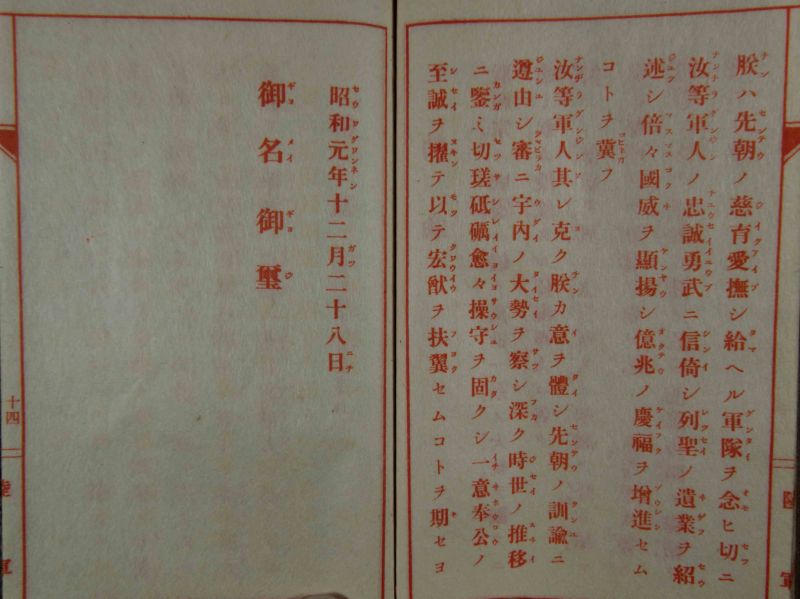 朕ハ先朝ノ慈育愛撫シ給ヘル軍隊ヲ念ヒ切ニ
汝等軍人ノ忠誠勇武ニ信倚シ列聖ノ遺業ヲ紹
述シ倍々國威ヲ顯揚シ億兆ノ慶福ヲ增進セム
コトヲ冀フ
汝等軍人其レ克ク朕カ意ヲ體シ先朝ノ訓諭ニ
遵由シ審ニ宇內ノ大勢ヲ察シ深ク時世ノ推移
ニ鑒ミ切瑳砥礪愈々操守ヲ固クシ一意奉公ノ
至誠ヲ擢テ以テ宏猷ヲ扶翼セムコトヲ期セヨ
昭和元年十二月二十八日
御名御璽
十四